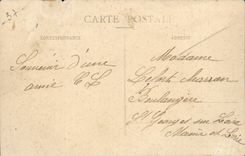 37
CARTE POSTALE
CORRESPONDANCE
ADRESSE
Souvenir d'une
amie
Madame
Boulangère
St Georges sur Loire
Maine et Loire